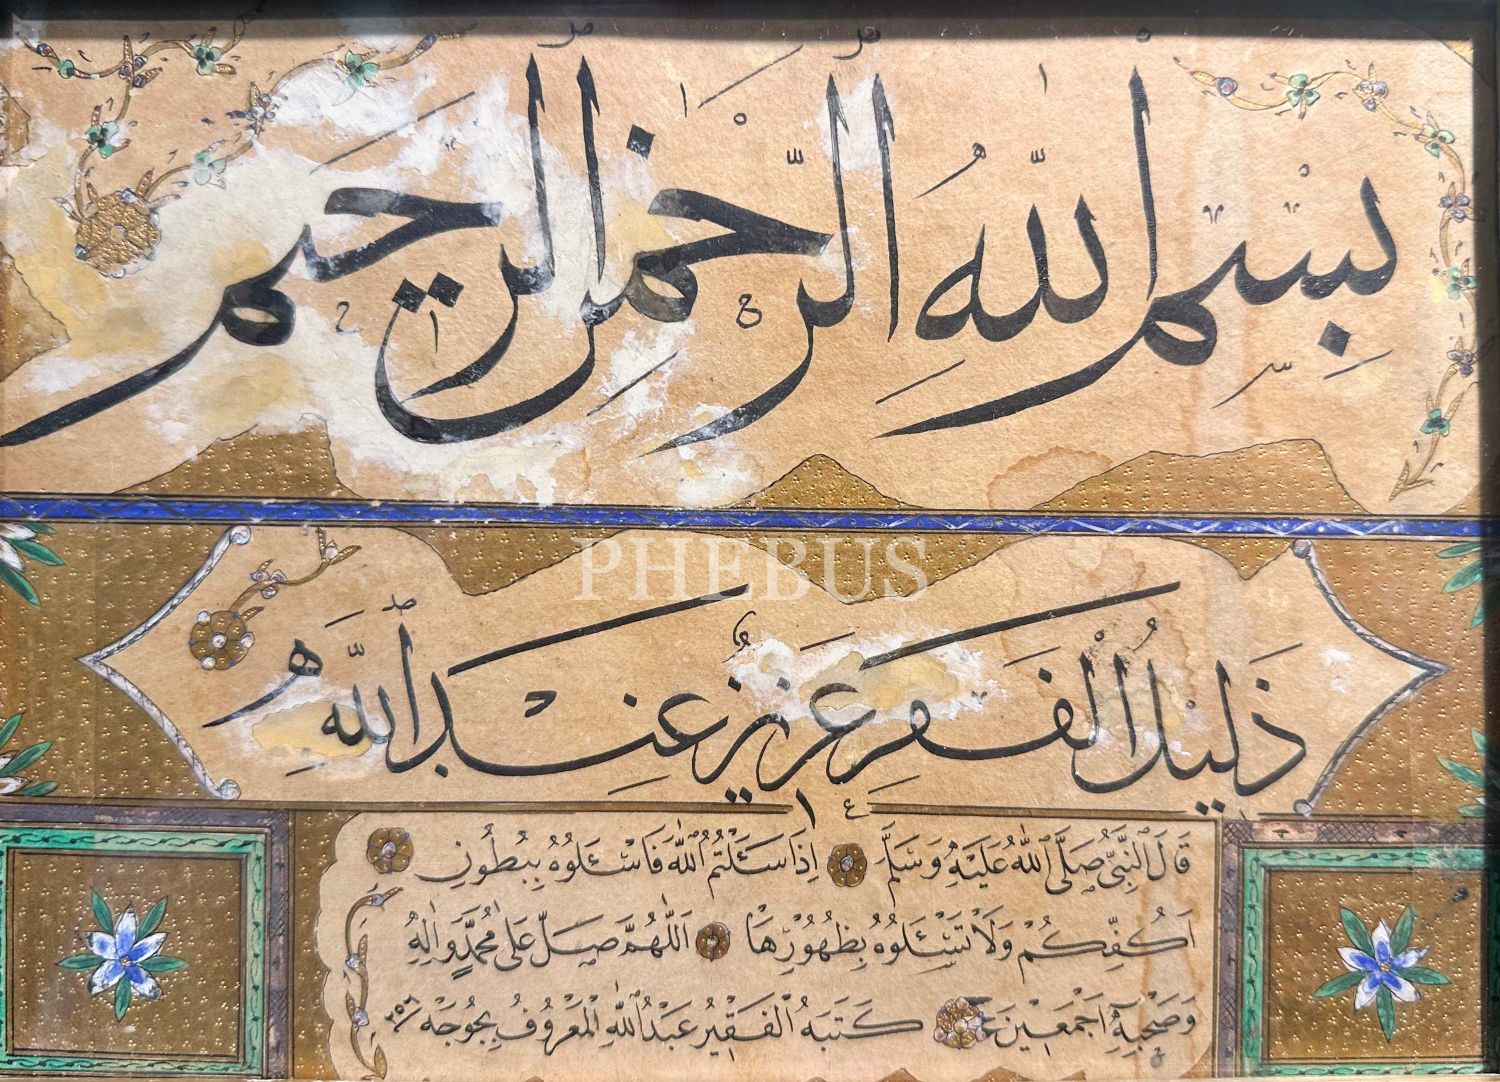 بسم الله الرحمن الرحيم
PHEBUS
ذليل الفقر عزيز عند الله
قال النبي صلى الله عليه وسلم اذا سئلتم الله فاسئلوه ببطون
اكفكم ولا تسئلوه بظهورها اللهم صل على محمد واله
وصحبه اجمعين كتبه الفقير عبد الله المعروف بجوجه